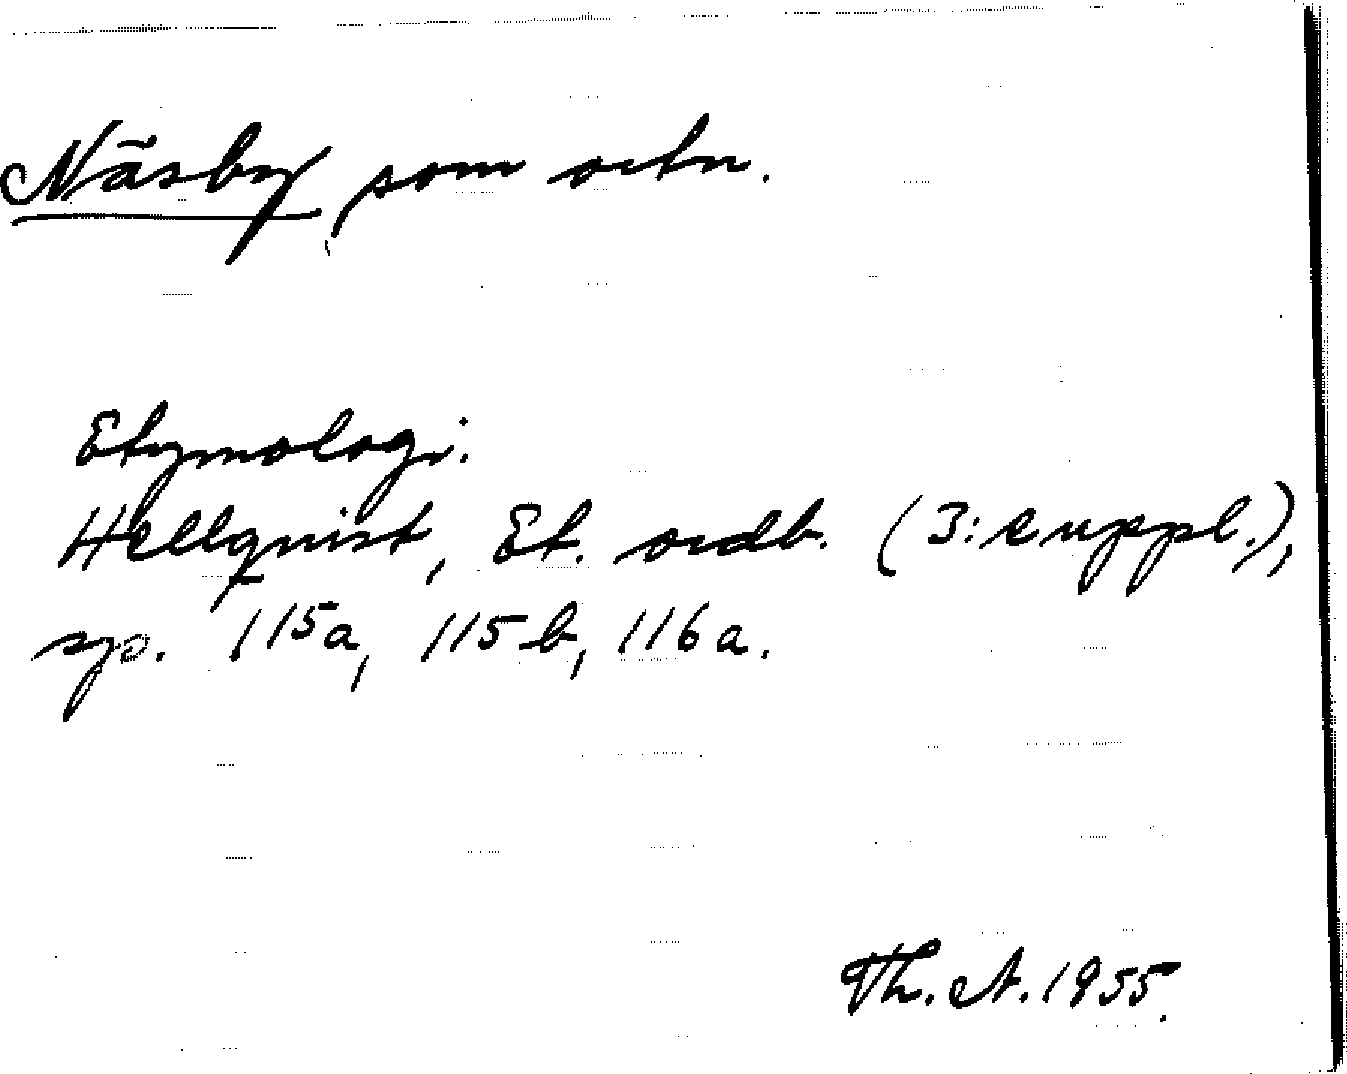 Näsby, som ortn.
Etymologi:
Hellquist, Et. ordb. (3: e uppl.),
sp. 115a, 115 b, 116 a.
Th. A. 1955.